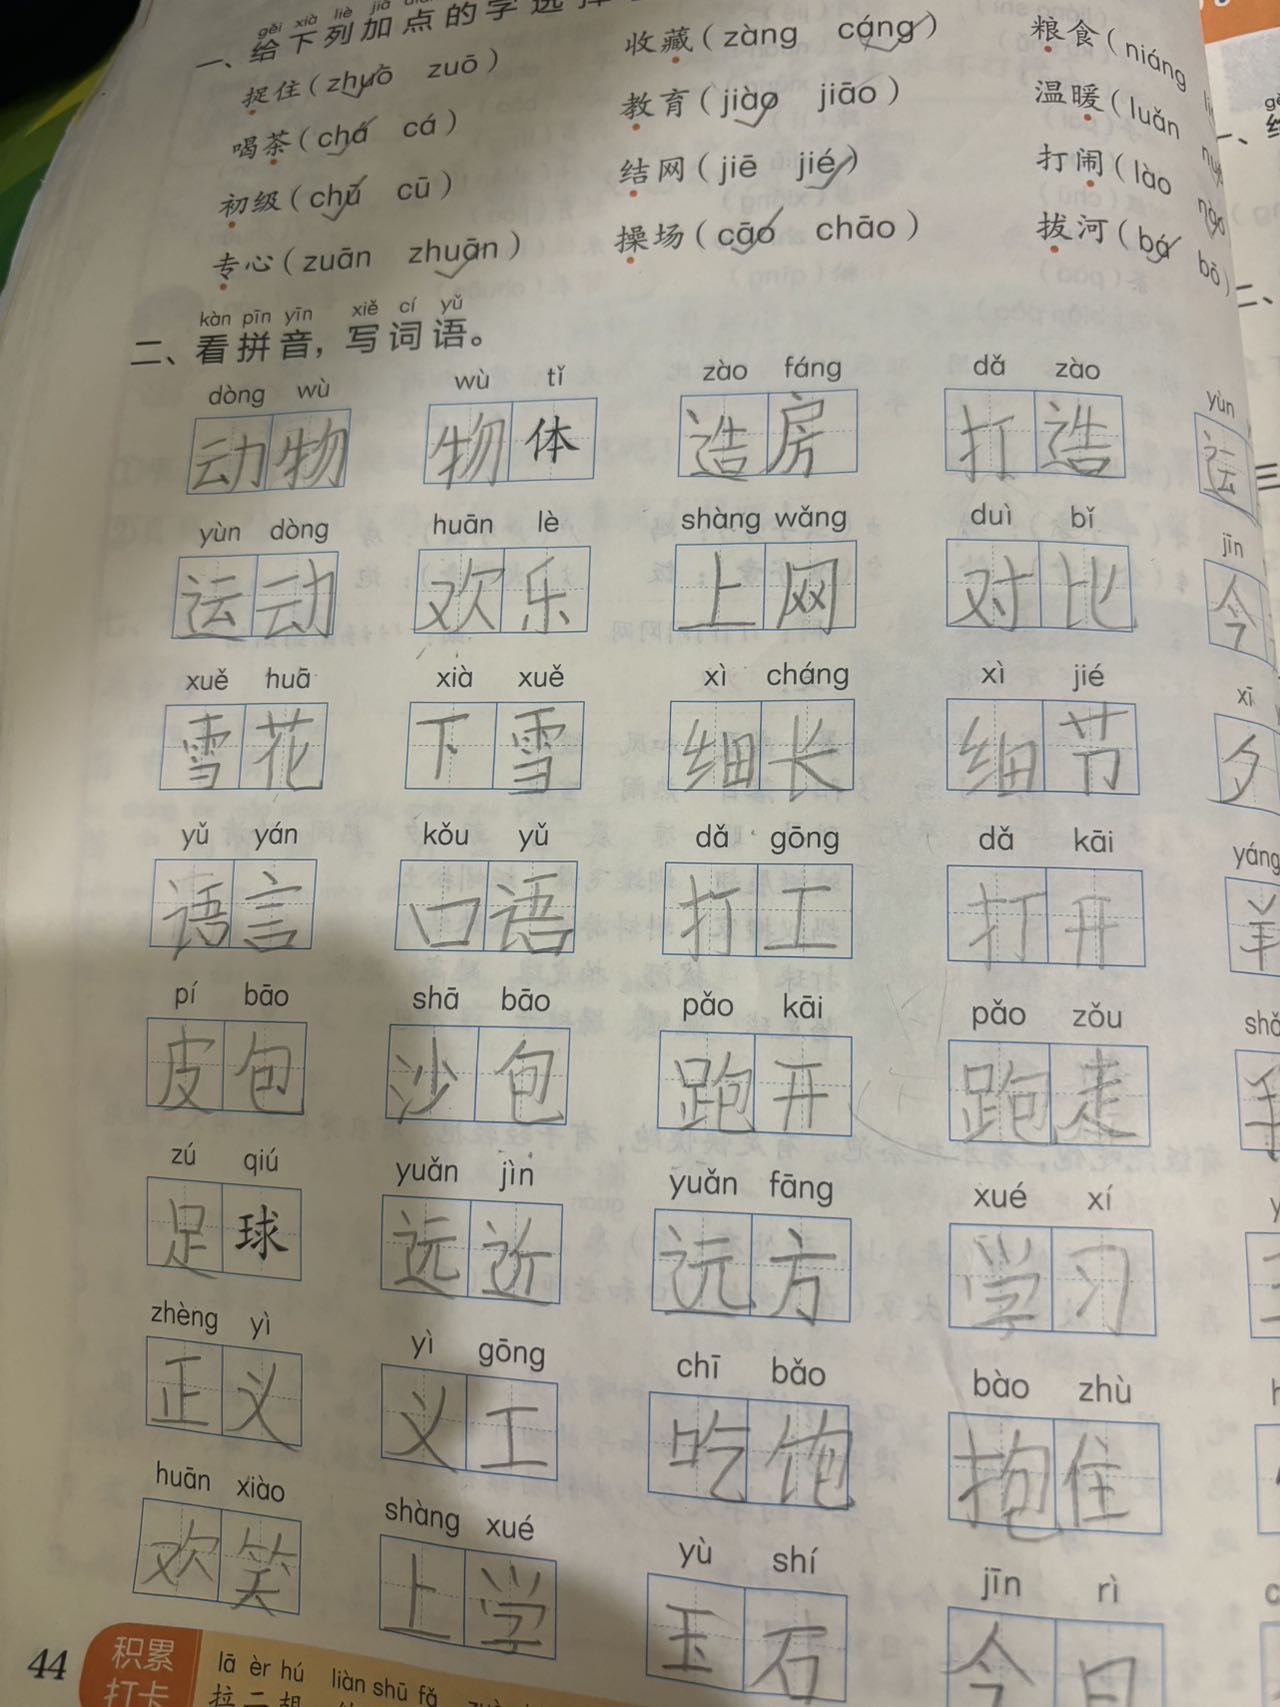 gěi xià liè jiā
一、给下列加点的字选择
捉住(zhuō zuō) 收藏(zàng cáng) 粮食(niáng
喝茶(chá cá) 教育(jiào jiāo) 温暖(luǎn
初级(chū cū) 结网(jiē jié) 打闹(lào nào
专心(zuān zhuān) 操场(cāo chāo) 拔河(bá bō)
kàn pīn yīn xiě cí yǔ
二、看拼音，写词语。
dòng wù wù tǐ zào fáng dǎ zào yùn
动物 物体 造房 打造 运
yùn dòng huān lè shàng wǎng duì bǐ jīn
运动 欢乐 上网 对比 今
xuě huā xià xuě xì cháng xì jié xī
雪花 下雪 细长 细节 夕
yǔ yán kǒu yǔ dǎ gōng dǎ kāi yáng
语言 口语 打工 打开 羊
pí bāo shā bāo pǎo kāi pǎo zǒu
皮包 沙包 跑开 跑走
zú qiú yuǎn jìn yuǎn fāng xué xí
足球 远近 远方 学习
zhèng yì yì gōng chī bǎo bào zhù
正义 义工 吃饱 抱住
huān xiào shàng xué yù shí jīn rì
欢笑 上学 玉石 今日
44
积累
打卡
lā èr hú liàn shū fǎ
拉二胡